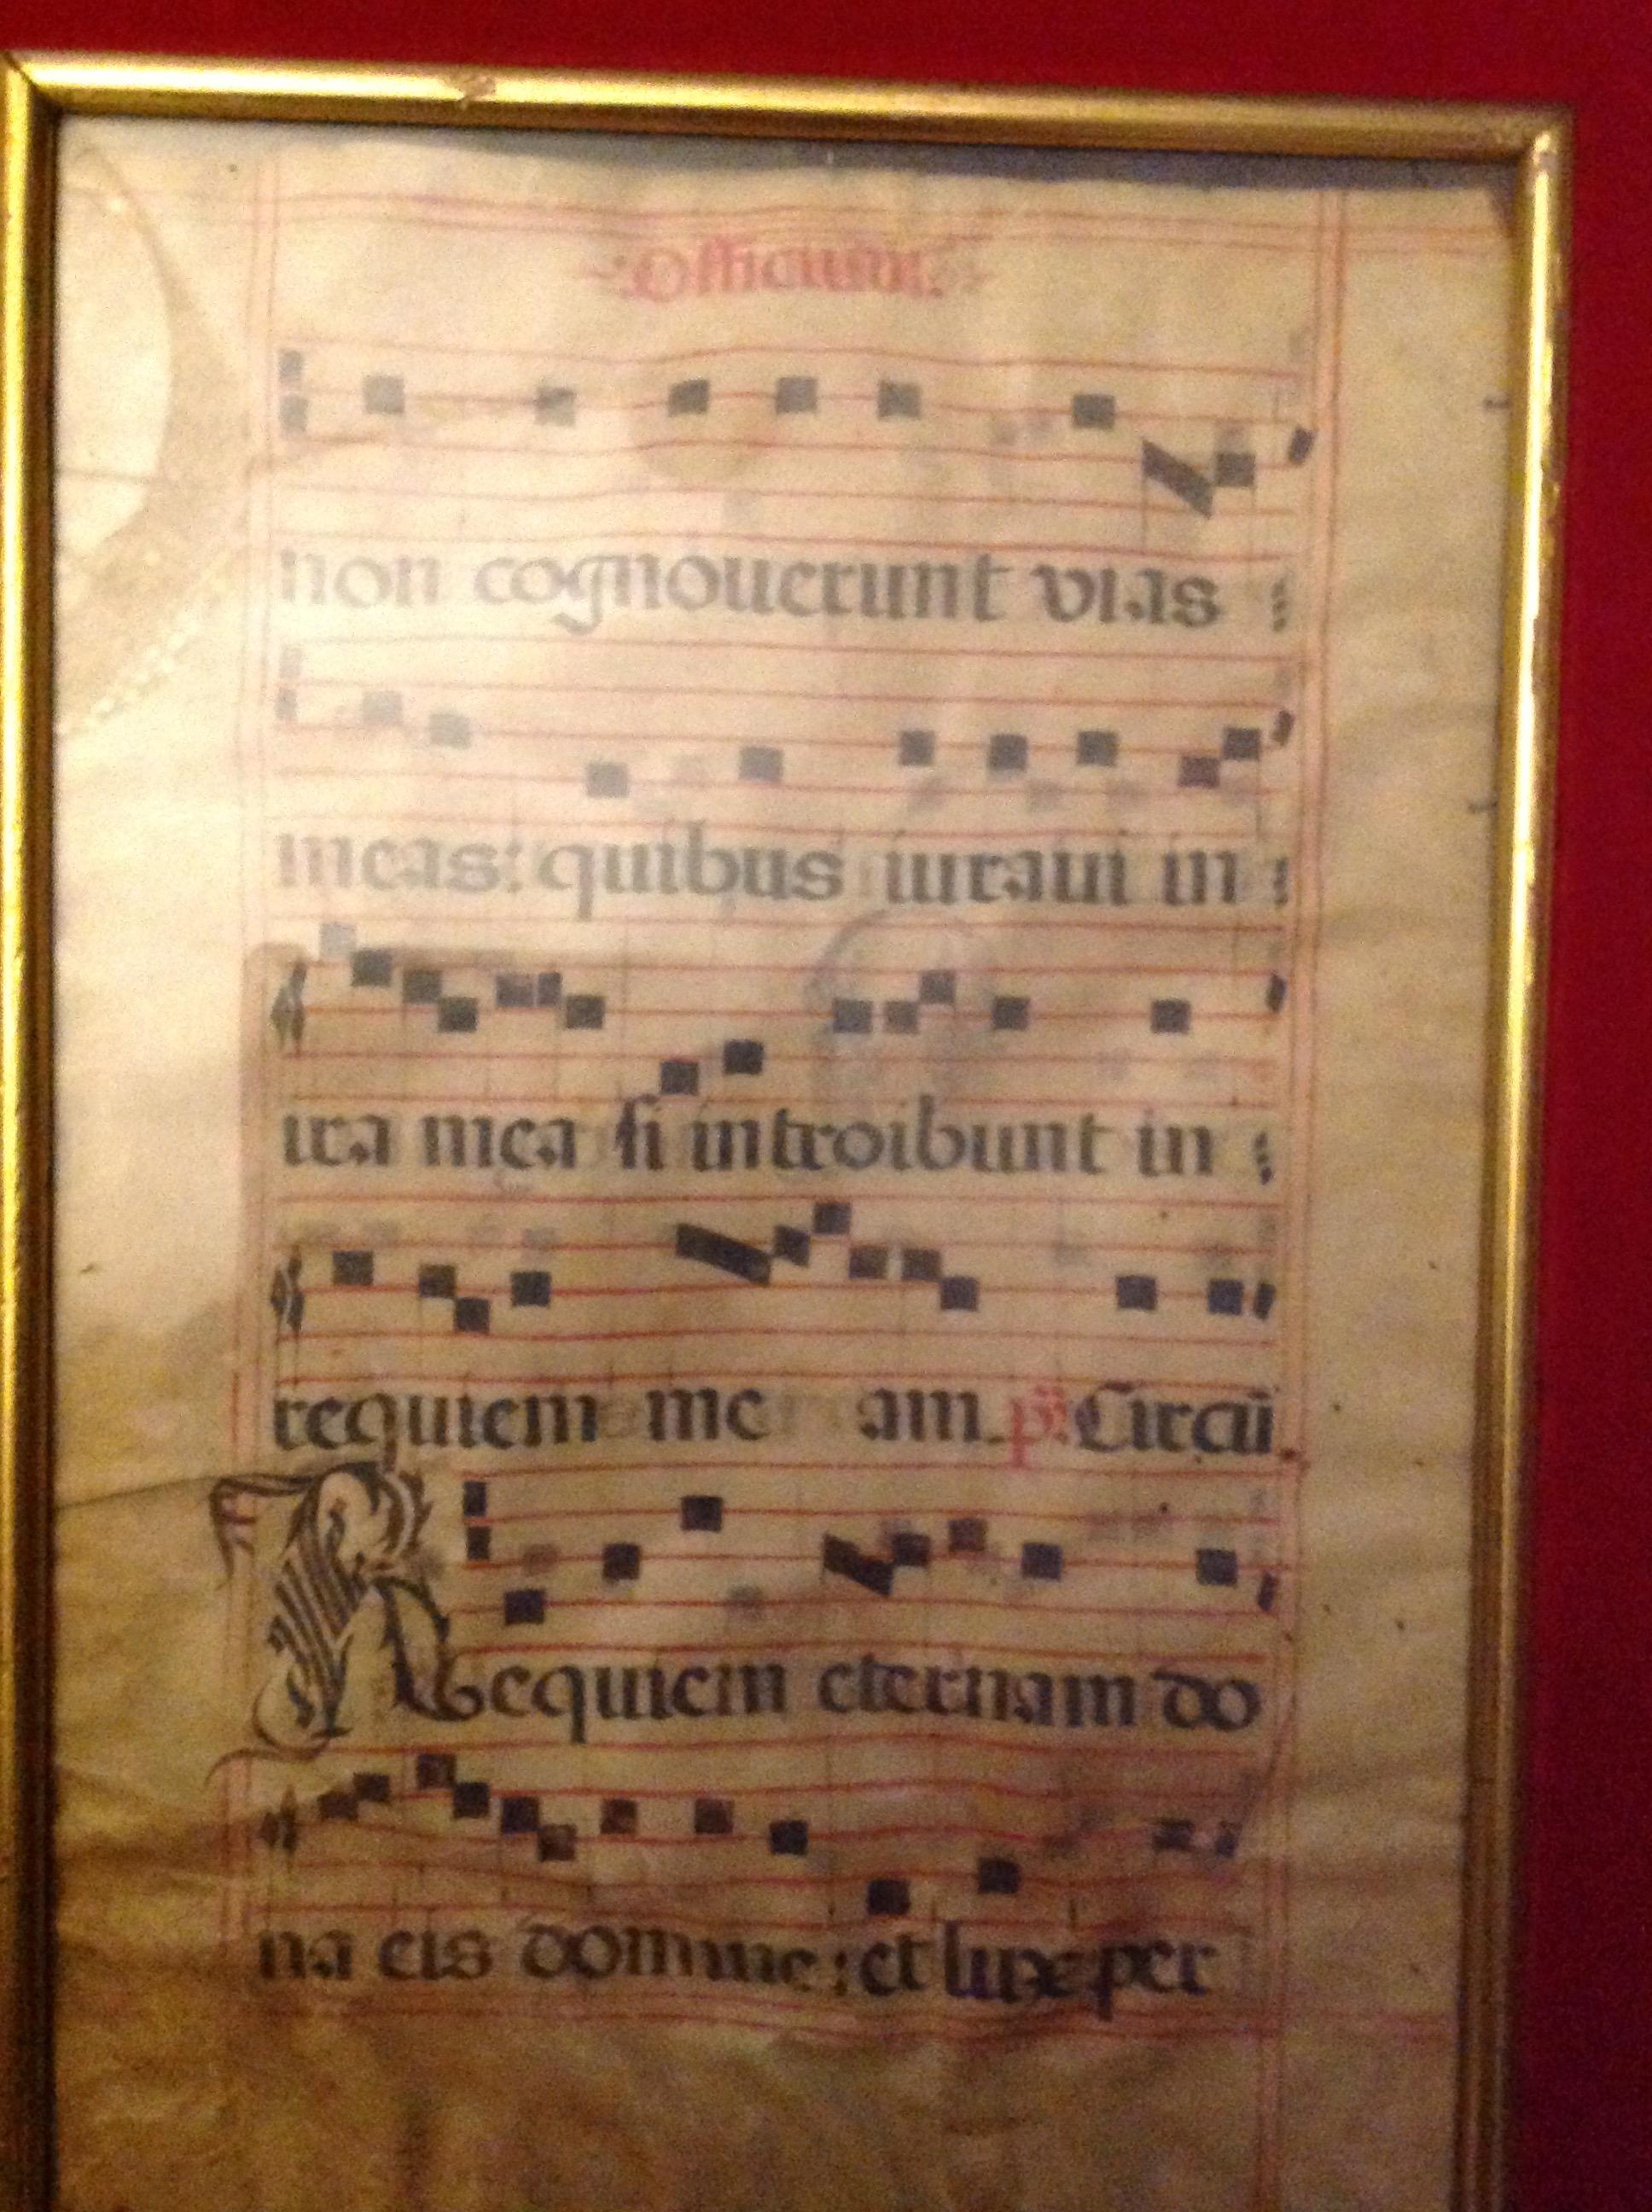 Officium
non cognouerunt vias
meas: quibus iuraui in
ira mea si introibunt in
requiem me am p̄s. Circū
Requiem eternam do
na eis domine: et lux per